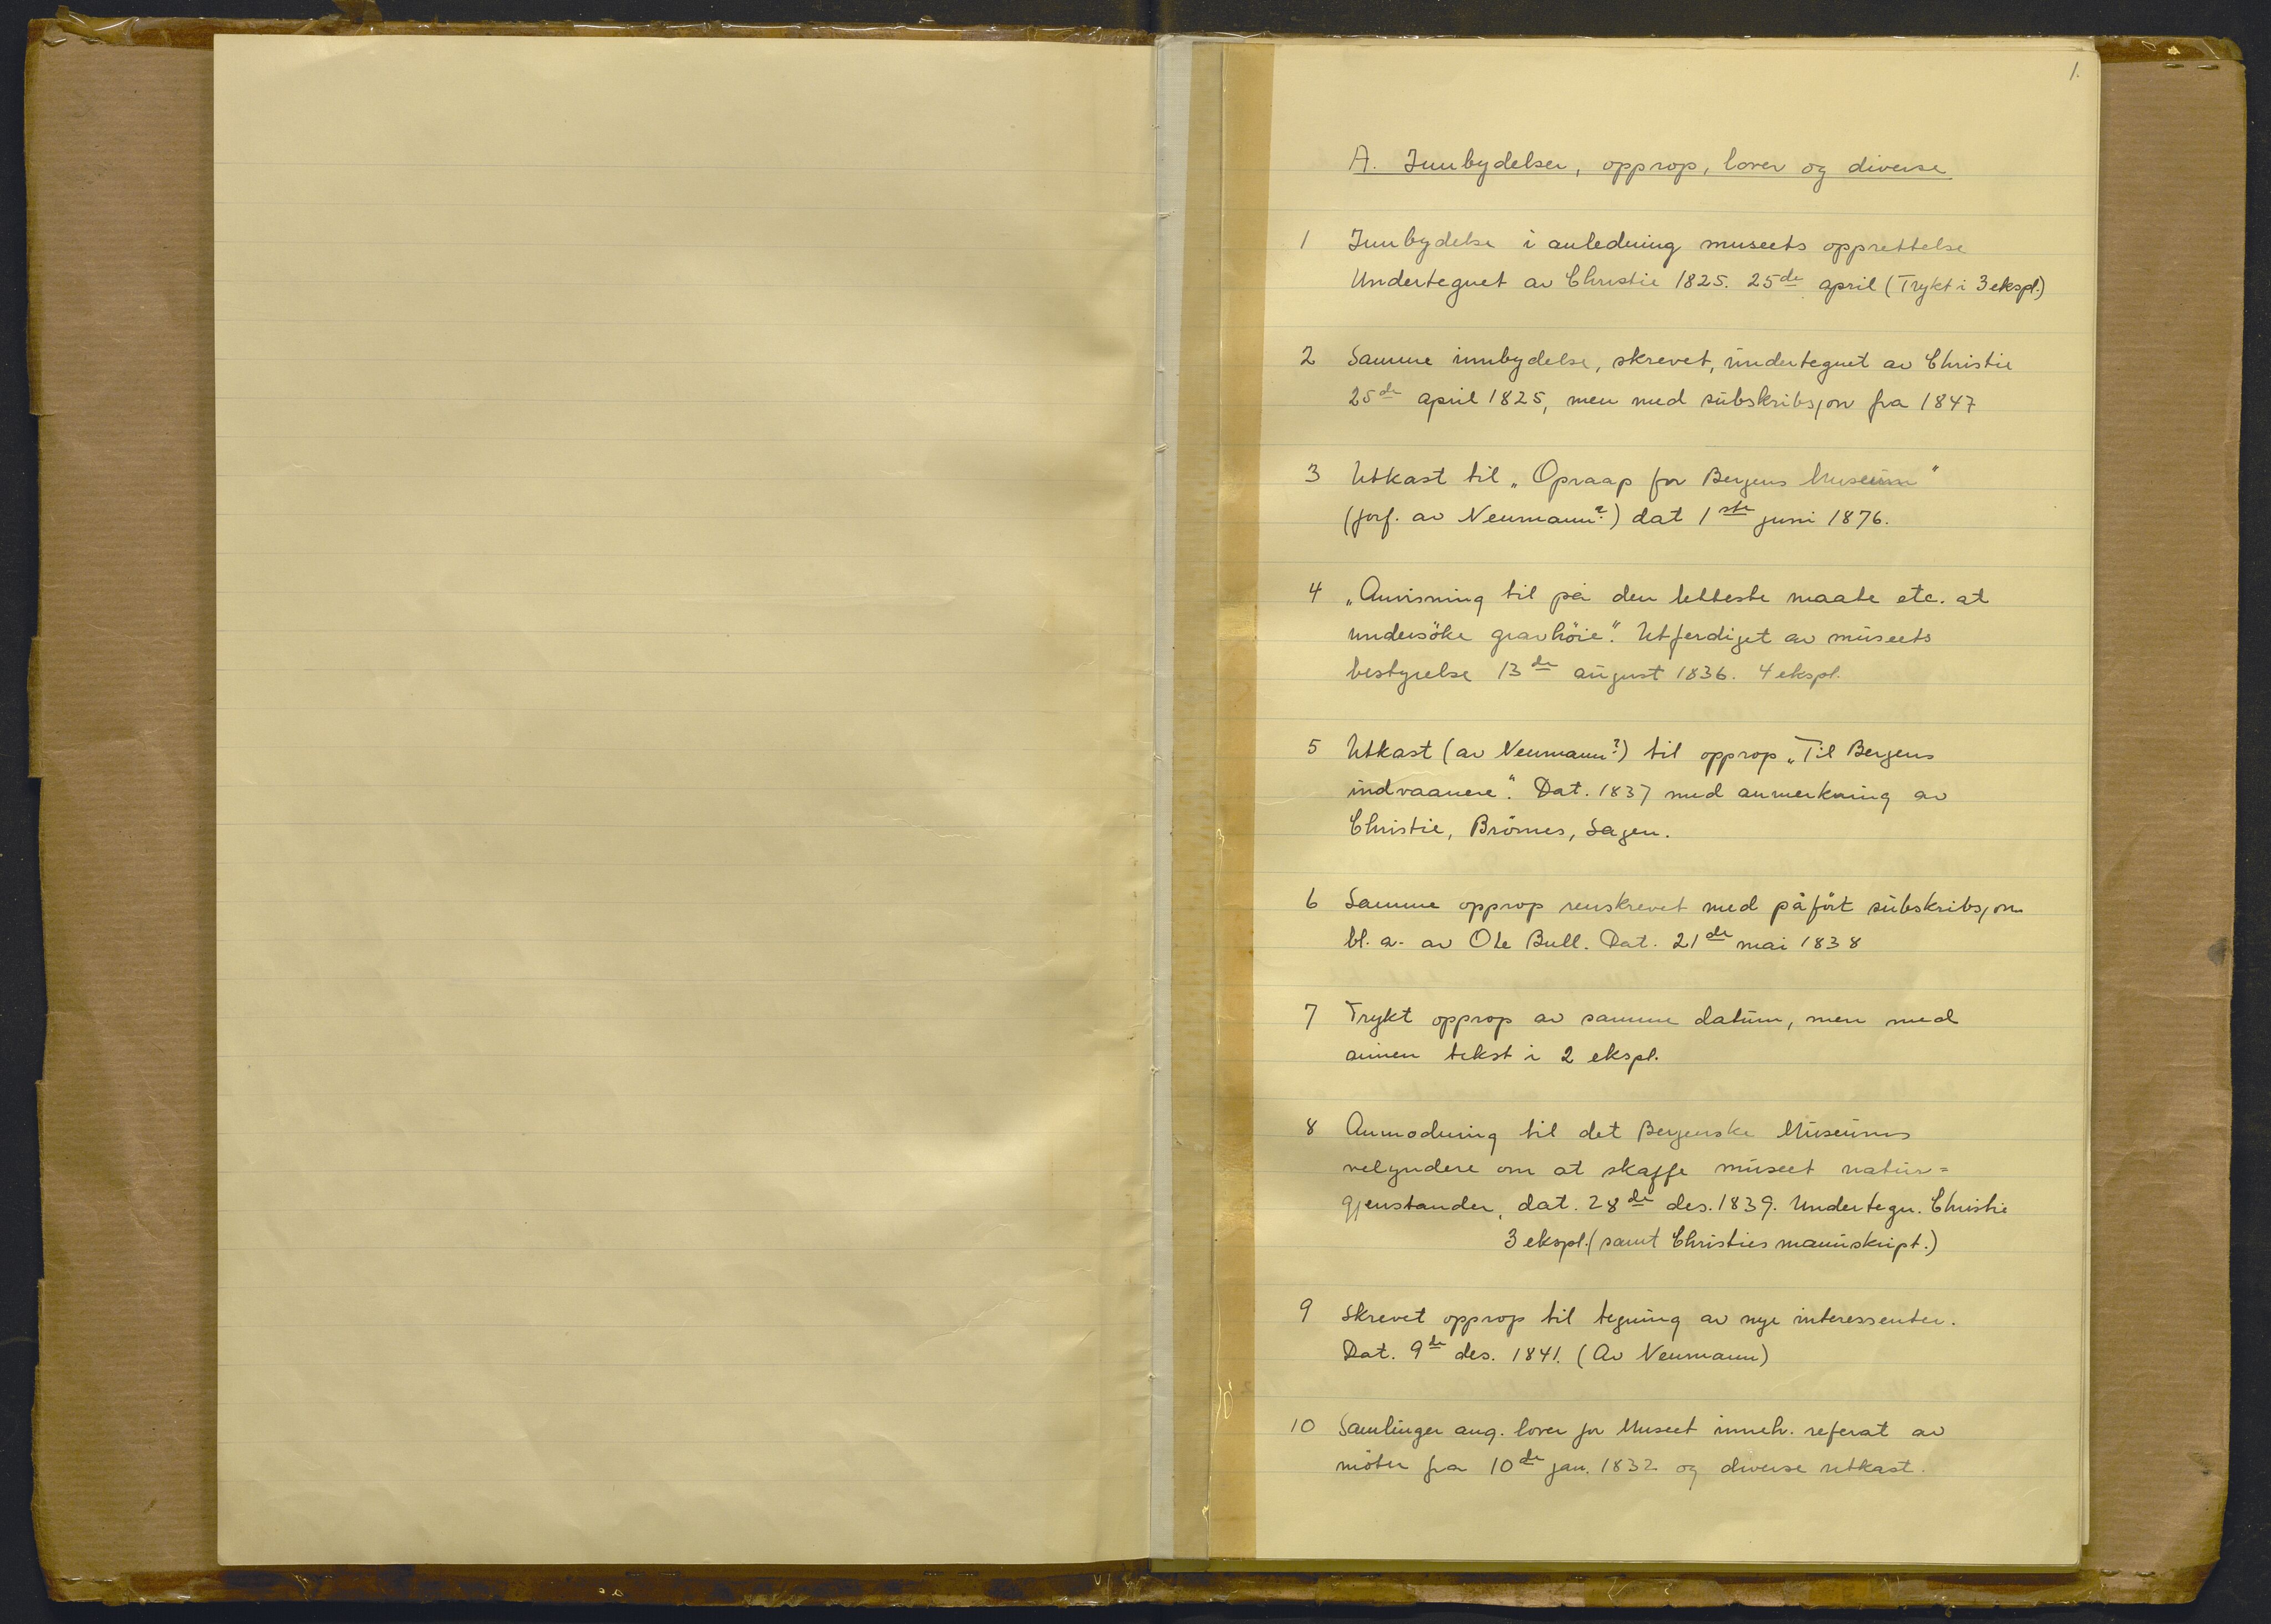 1.
A. Innbydelser, opprop, lover og diverse
1 Innbydelse i anledning museets opprettelse
Undertegnet av Christie 1825. 25de april (Trykt i 3 ekspl.)
2 Samme innbydelse, skrevet, undertegnet av Christie
25de april 1825, men med subskribsjon fra 1847
3 Utkast til „Opraap for Bergens Museum"
(forf. av Neumann?) dat 1ste juni 1876.
4 „Anvisning til på den letteste maate etc. at
undersöke gravhöie". Utferdiget av museets
bestyrelse 13de august 1836. 4 ekspl.
5 Utkast (av Neumann?) til opprop „Til Bergens
indvaanere". Dat. 1837 med anmerkning av
Christie, Sagen.
6 Samme opprop renskrevet med påfört subskribsjon
bl. a. av Ole Bull. Dat. 21de mai 1838
7 Trykt opprop av samme datum, men med
annen tekst i 2 ekspl.
8 Anmodning til det Bergenske Museums
velyndere om at skaffe museet natur=
gjenstander, dat. 28de des. 1839. Undertegn. Christie
3 ekspl. (samt Christies manuskript.)
9 Skrevet opprop til tegning av nye interessenter.
Dat. 9de des. 1841. (Av Neumann)
10 Samlinger ang. lover for Museet inneh. referat av
möter fra 10de jan. 1832 og diverse utkast.